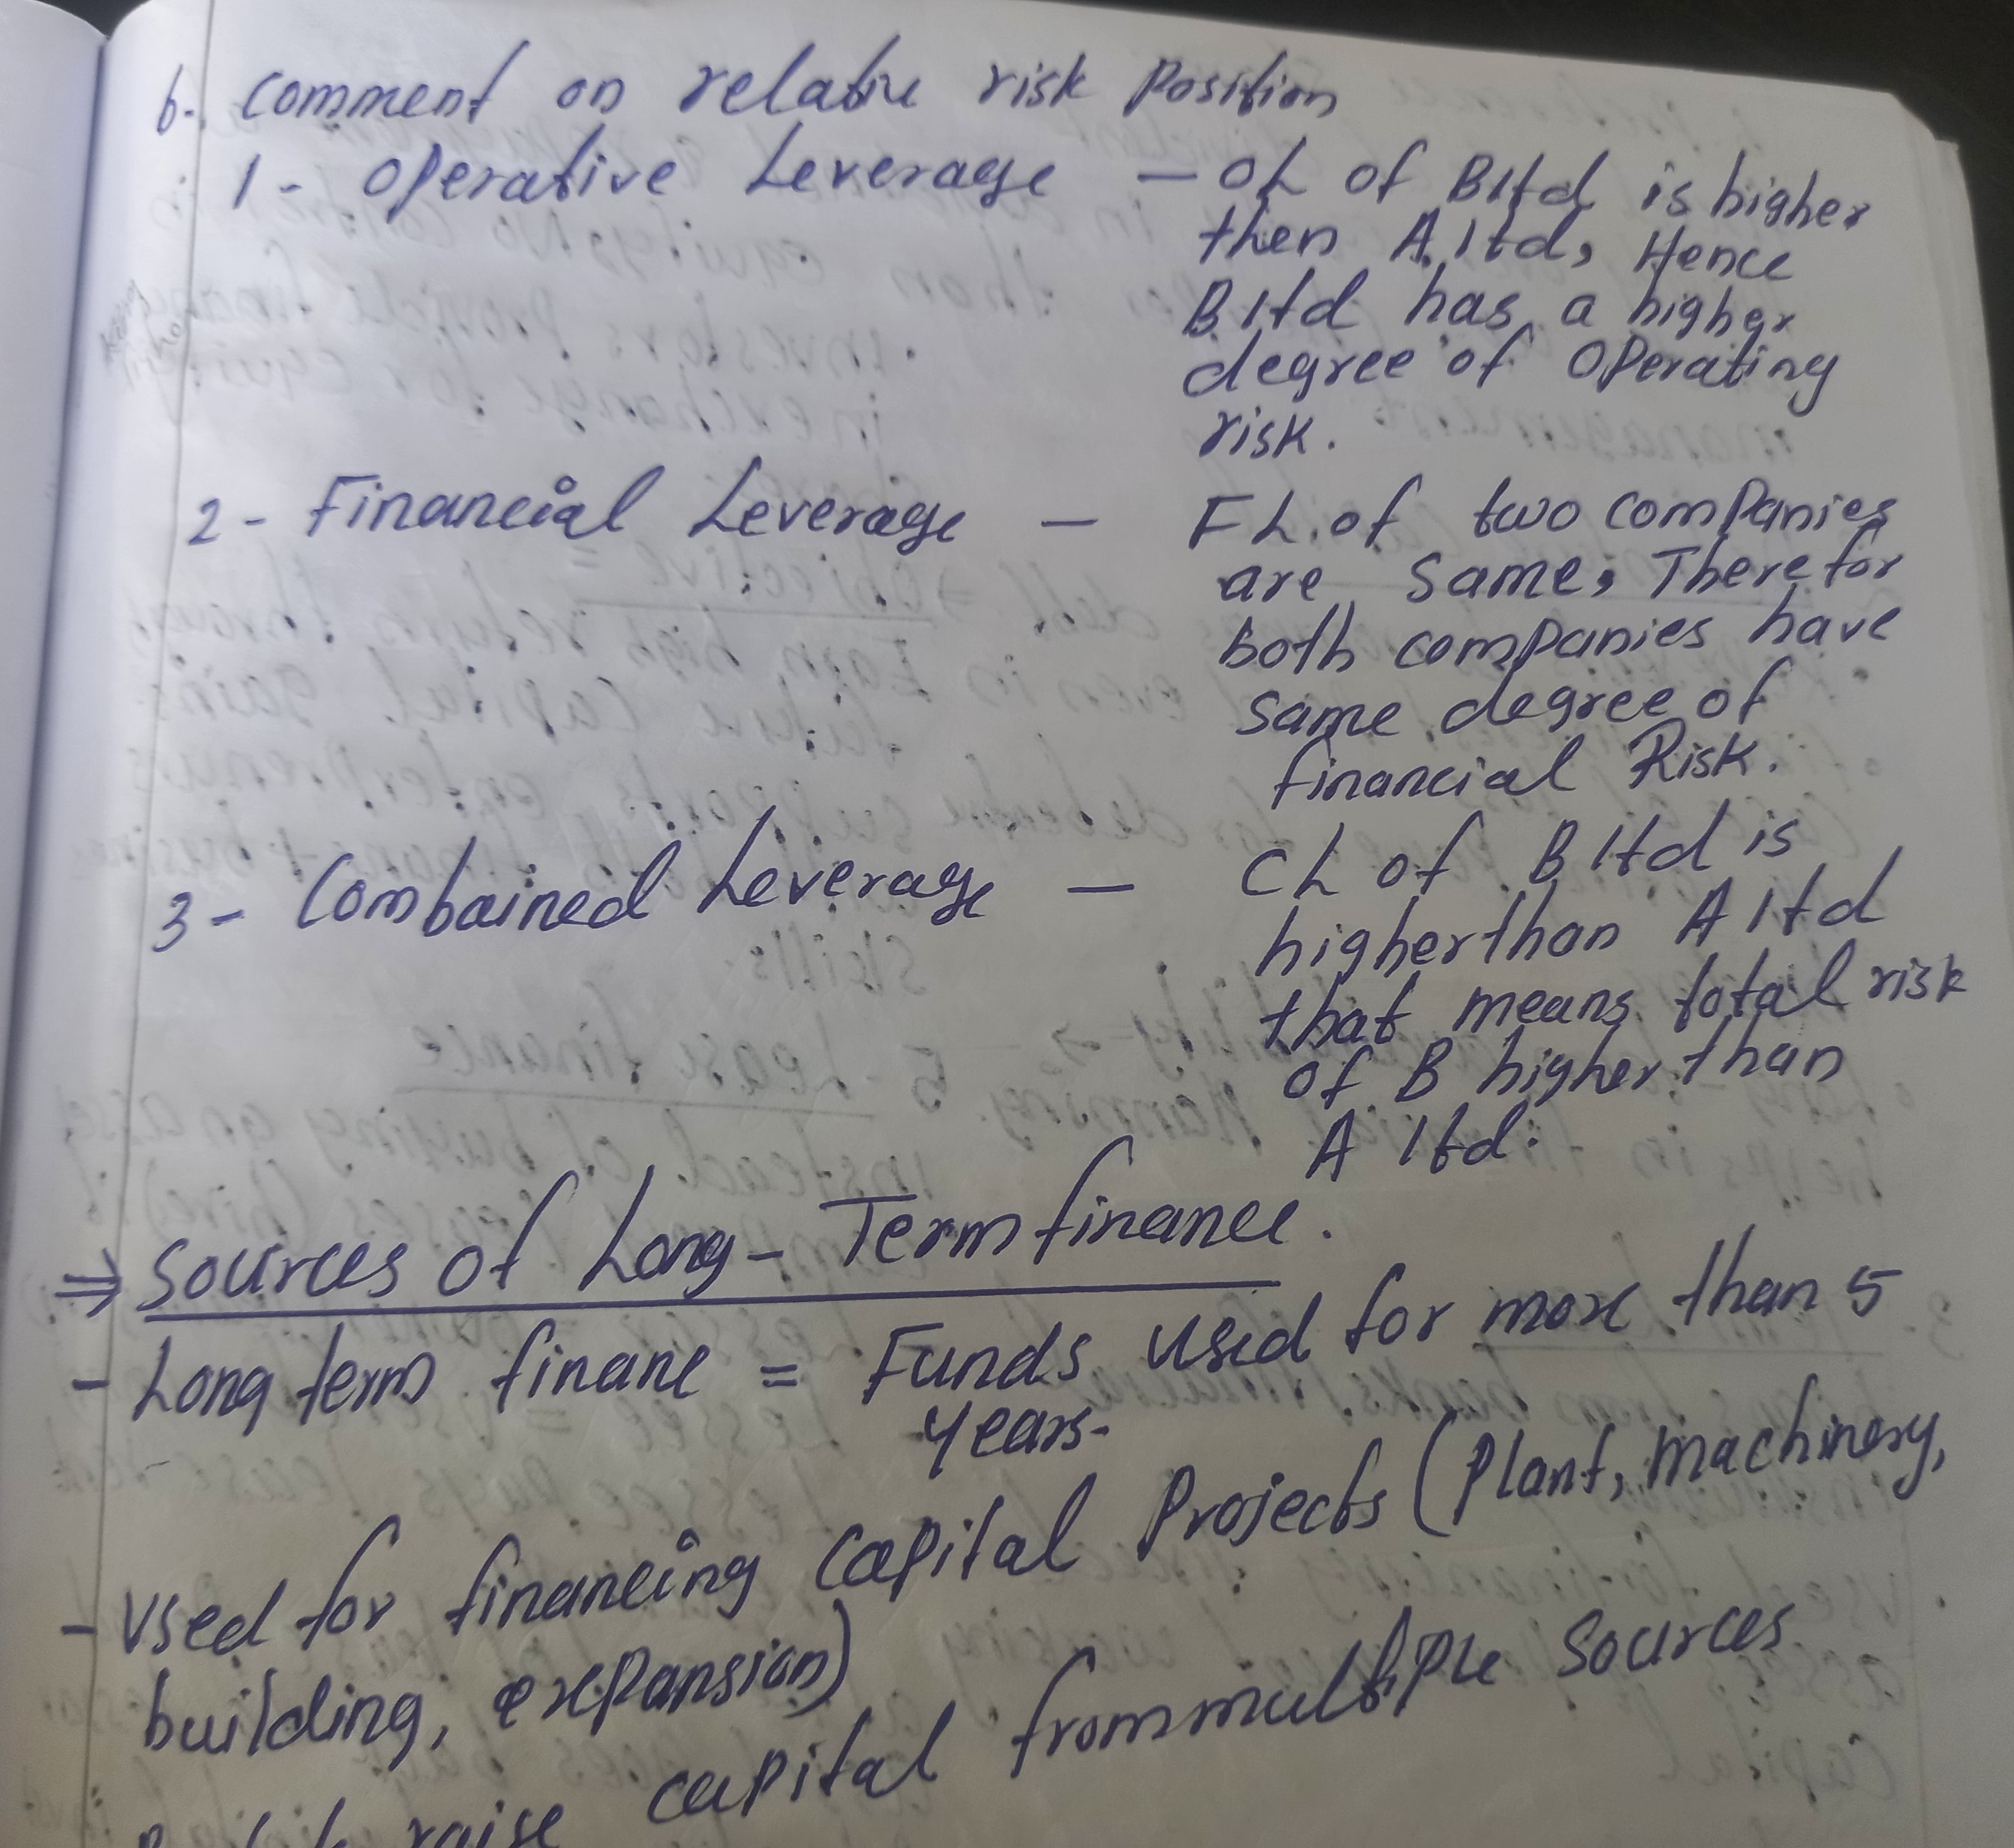 b. Comment on relative risk Position
1 - Operative Leverage — OL of B ltd is higher
then A ltd, Hence
B ltd has a higher
degree of Operating
risk.
2 - Financial Leverage — FL of two companies
are Same, Therefor
both companies have
same degree of
financial Risk.
3 - Combained Leverage — CL of B ltd is
higher than A ltd
that means total risk
of B higher than
A ltd.
⇒ Sources of Long - Term finance.
- Long term finane = Funds used for more than 5
years.
- Used for financing capital Projects (Plant, machinery,
building, expansion)
raise capital from multiple sources